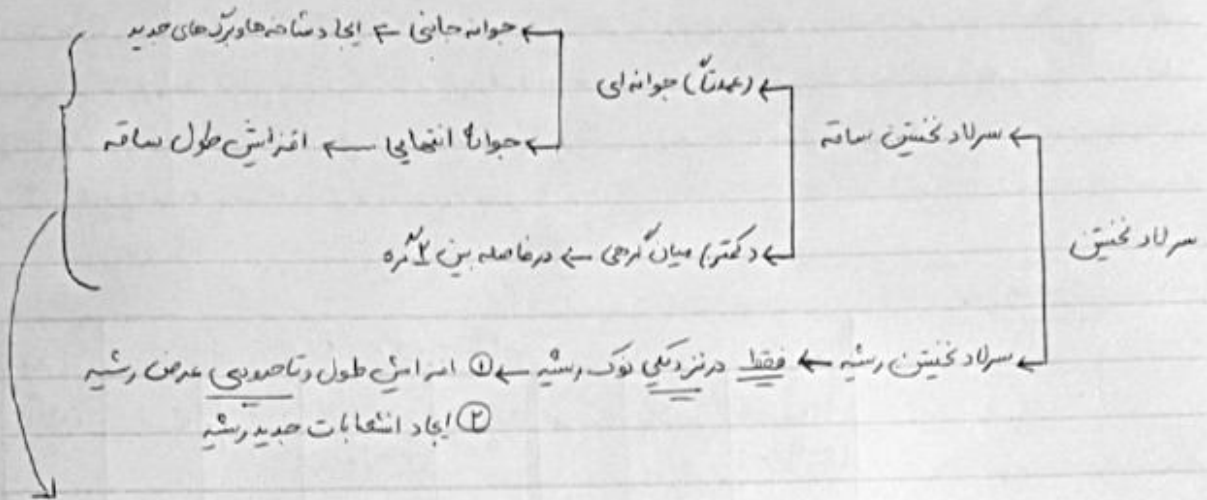 سرلاد نخستین
سرلاد نخستین ساقه
(عمدتاً) جوانه‌ای
جوانه جانبی ← ایجاد شاخه‌ها و برگ‌های جدید
جوانهٔ انتهایی ← افزایش طول ساقه
(کمتر) میان‌گرهی ← در فاصله بین ۲ گره
سرلاد نخستین ریشه ← فقط در نزدیکی نوک ریشه ← ① افزایش طول و تاحدودی عرض ریشه
② ایجاد انشعابات جدید ریشه